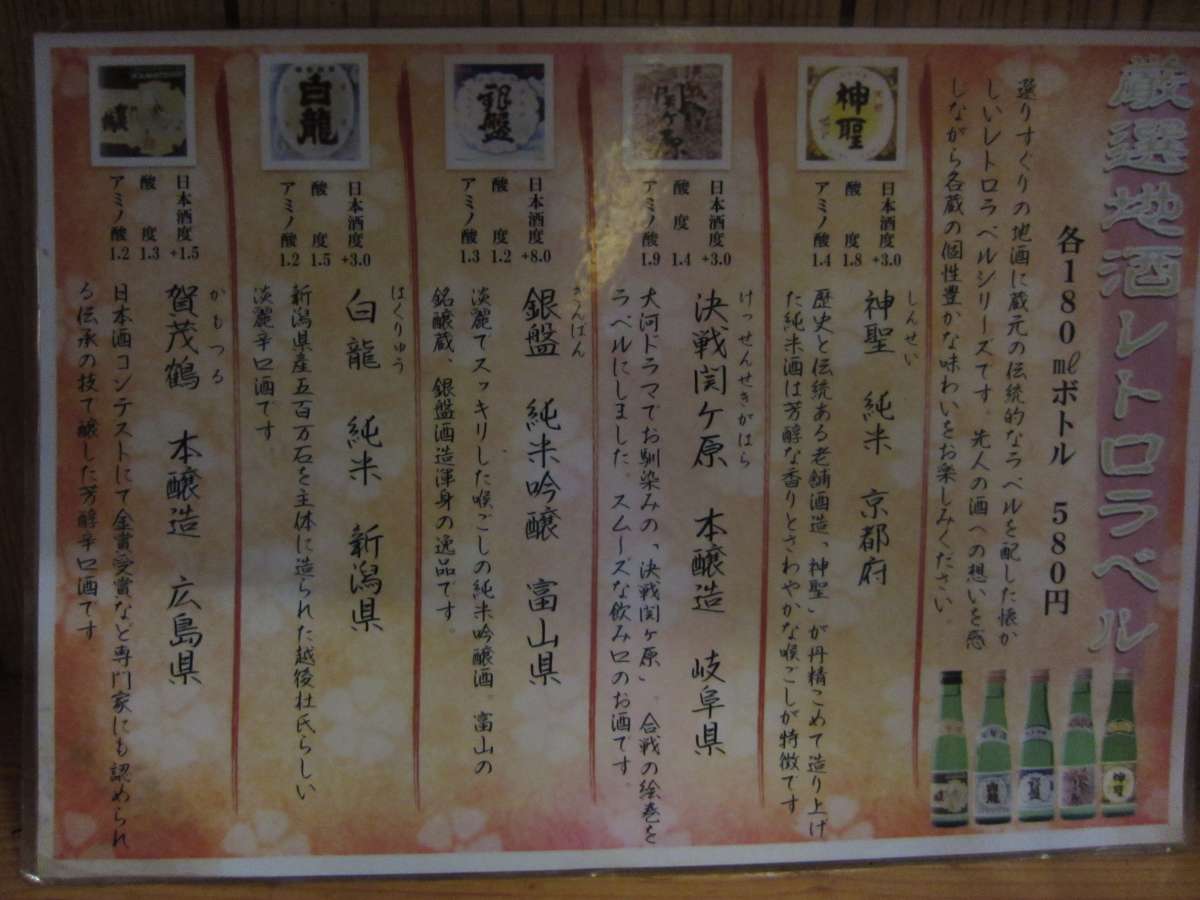 厳選地酒レトロラベル
各180㎖ボトル 580円
選りすぐりの地酒に蔵元の伝統的なラベルを配した懐か
しいレトロラベルシリーズです。先人の酒への想いを感
じながら各蔵の個性豊かな味わいをお楽しみください。
神聖
日本酒度 +3.0
酸度 1.8
アミノ酸 1.4
しんせい
神聖 純米 京都府
歴史と伝統ある老舗酒造、「神聖」が丹精こめて造り上げ
た純米酒は芳醇な香りとさわやかな喉ごしが特徴です
関ヶ原
日本酒度 +3.0
酸度 1.4
アミノ酸 1.9
けっせんせきがはら
決戦関ケ原 本醸造 岐阜県
大河ドラマでお馴染みの、「決戦関ヶ原」。合戦の絵巻を
ラベルにしました。スムーズな飲み口のお酒です。
銀盤
日本酒度 +8.0
酸度 1.2
アミノ酸 1.3
ぎんばん
銀盤 純米吟醸 富山県
淡麗でスッキリした喉ごしの純米吟醸酒。富山の
銘醸蔵、銀盤酒造渾身の逸品です。
白龍
日本酒度 +3.0
酸度 1.5
アミノ酸 1.2
はくりゅう
白龍 純米 新潟県
新潟県産五百万石を主体に造られた越後杜氏らしい
淡麗辛口酒です。
日本酒度 +1.5
酸度 1.3
アミノ酸 1.2
かもつる
賀茂鶴 本醸造 広島県
日本酒コンテストにて金賞受賞など専門家にも認められ
る伝承の技で醸した芳醇辛口酒です。
神聖